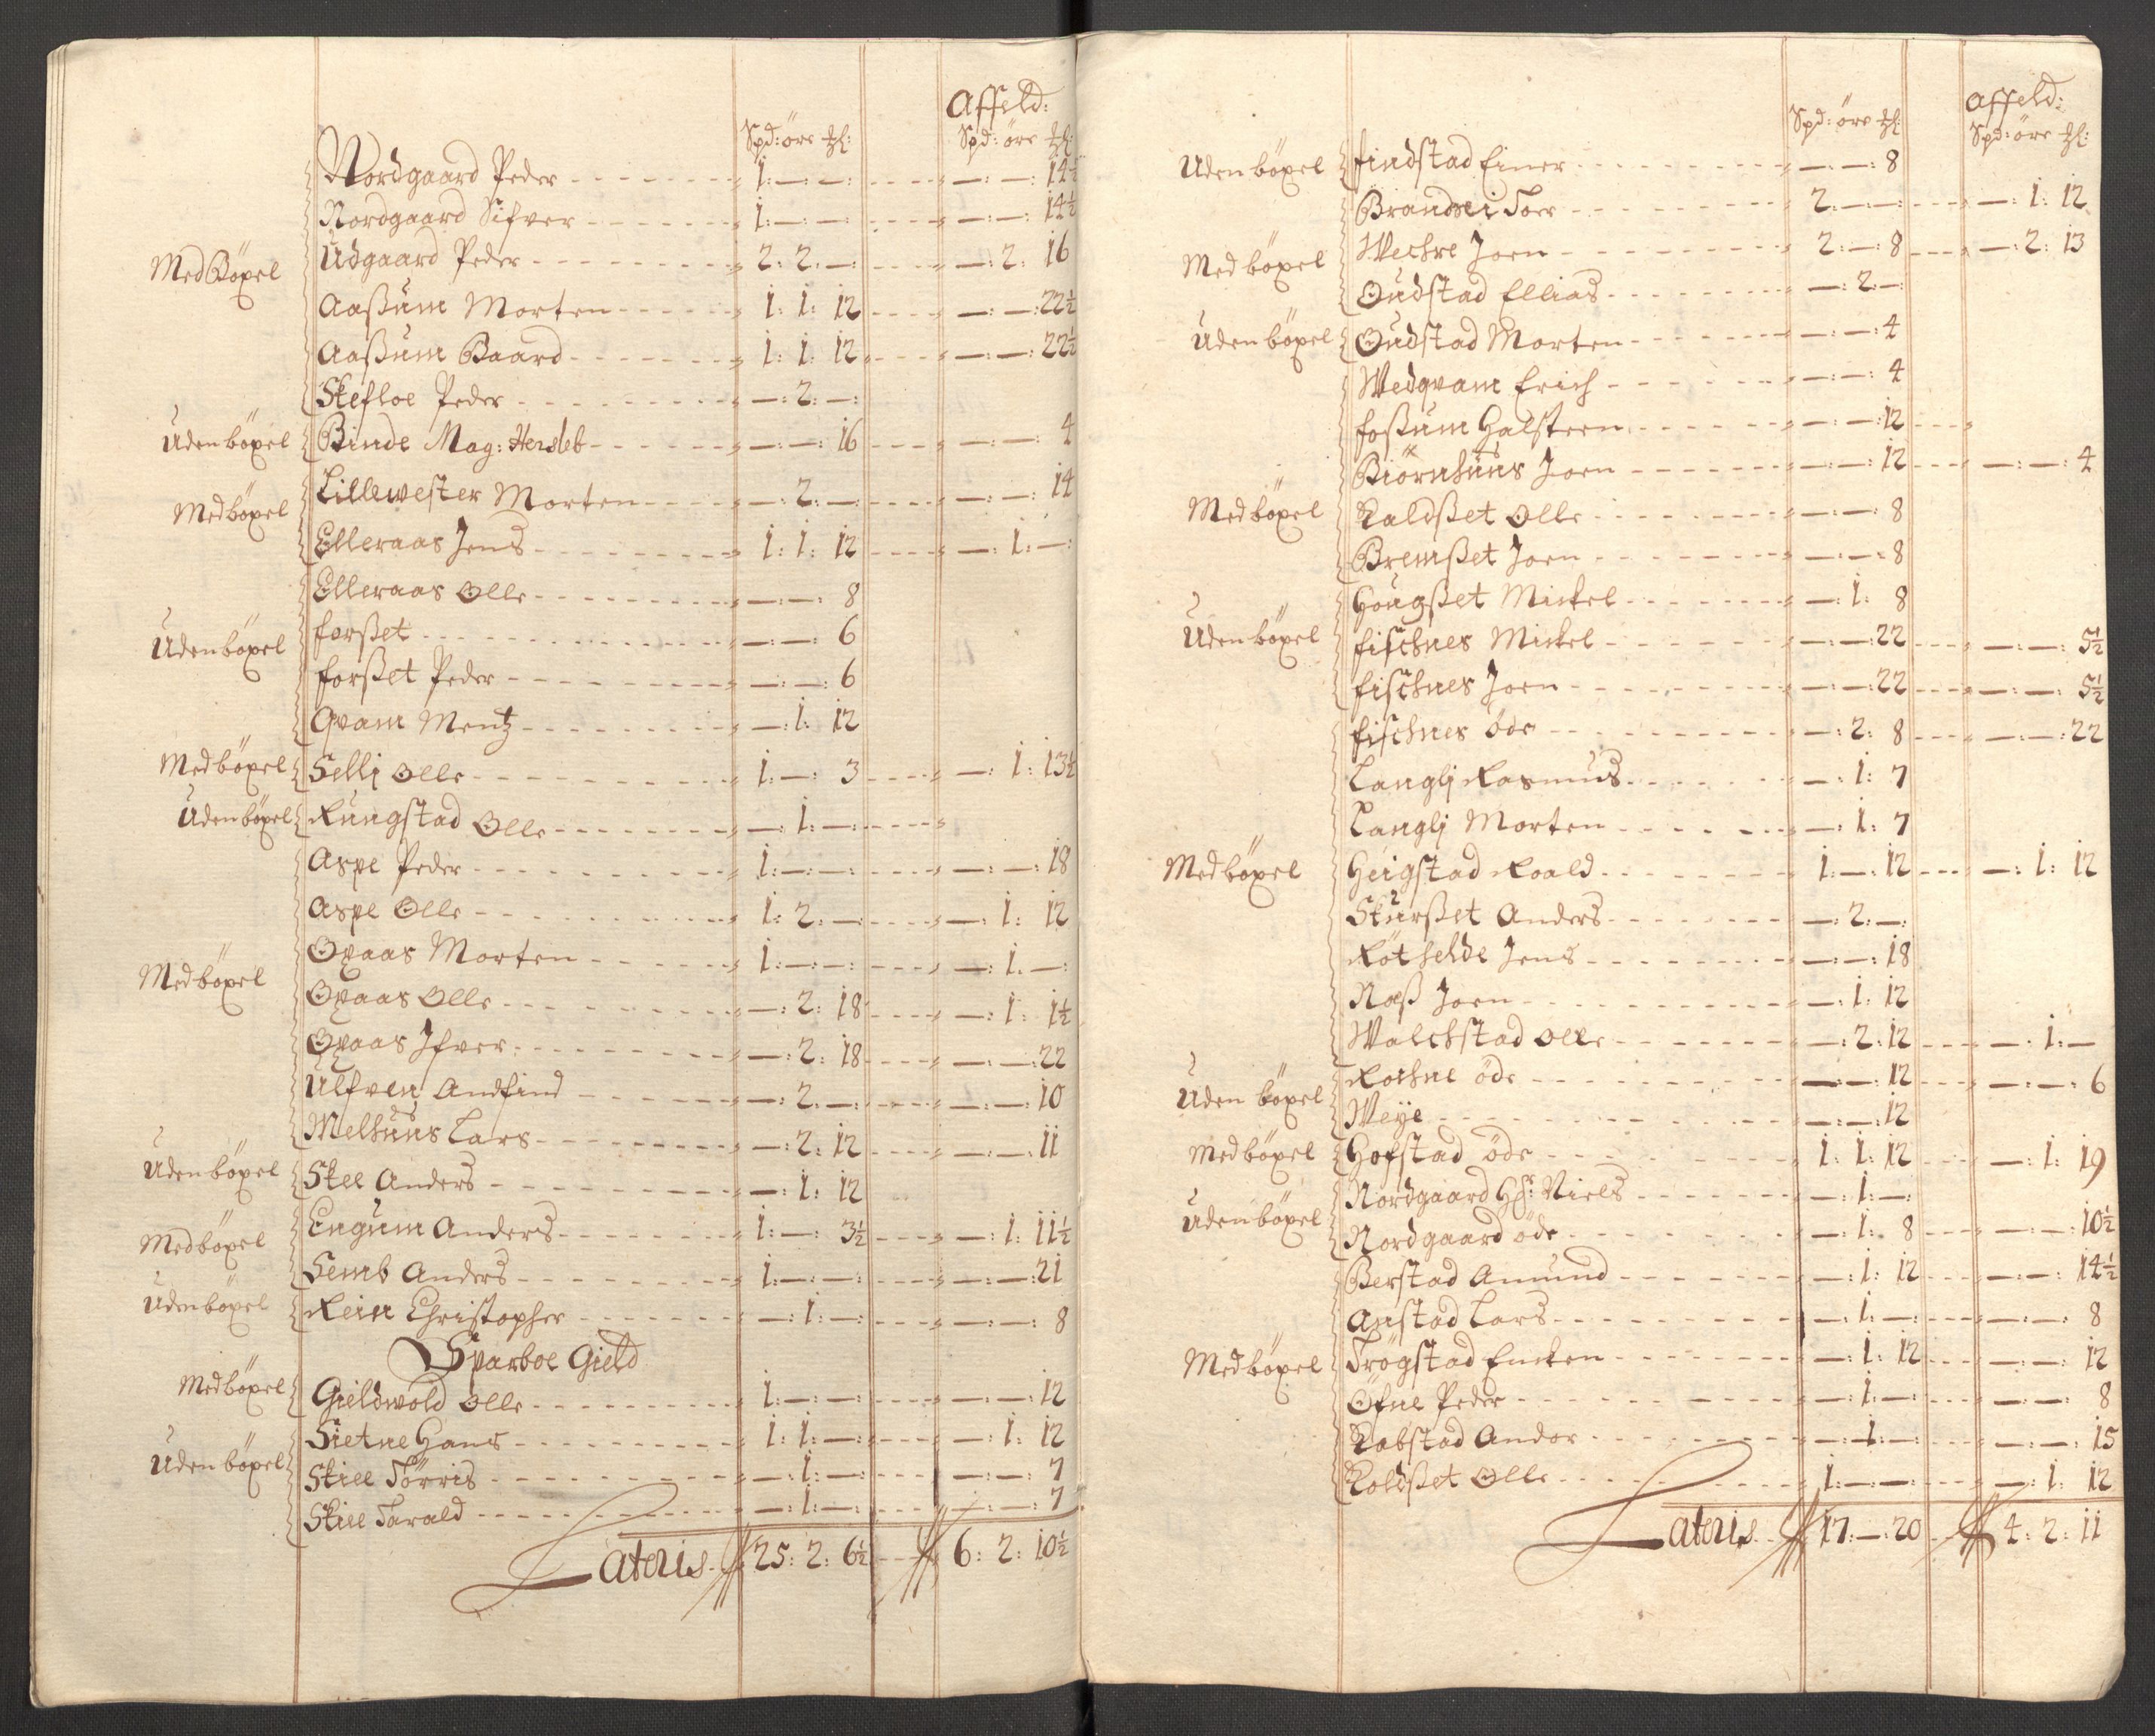 Affeld:
Spd: öre ₰: Spd: öre ₰:
Nordgaard Peder 1: —: — —: —: 14½
Nordgaard Sifver 1: —: — —: —: 14½
Med Böxel Udgaard Peder 2: 2: — —: 2: 16
Aaßum Morten 1: 1: 12 —: —: 22½
Aaßum Baard 1: 1: 12 —: —: 22½
Skefloe Peder —: 2: —
Uden böxel Binde Mag: Hersleb —: —: 16 —: —: 4
Med böxel Lillewester Morten —: 2: — —: —: 14
Elleraas Jens 1: 1: 12 —: 1: —
Elleraas Olle —: —: 8
Uden böxel forßet —: —: 6
forßet Peder —: —: 6
Qvam Mentz —: 1: 12
Med böxel Sellj Olle 1: —: 3 —: 1: 13½
Uden böxel Rungstad Olle —: 1: —
Aspe Peder 1: —: — —: —: 18
Aspe Olle 1: 2: — —: 1: 12
Med böxel Opaas Morten 1: —: — —: 1: —
Opaas Olle —: 2: 18 —: 1: 1½
Opaas Jfver —: 2: 18 —: —: 22
Ulfven Andfind —: 2: — —: —: 10
Melhuus Lars —: 2: 12 —: —: 11
Uden böxel Stee Anders —: 1: 12
Med böxel Engum Anders 1: —: 3½ —: 1: 11½
Semb Anders 1: —: — —: —: 21
Uden böxel Rein Christopher —: 1: — —: —: 8
Sparboe Gield
Med böxel Gieldwold Olle 1: —: — —: —: 12
Uden böxel Sietne Hans 1: 1: — —: 1: 12
Stiee Törris —: 1: — —: —: 7
Stiee Tarald —: 1: — —: —: 7
Lateris 25: 2: 6½ 6: 2: 10½
Affeld:
Spd: öre ₰: Spd: öre ₰:
Uden böxel findstad Einer —: —: 8
Brandsei Toer 2: —: — —: 1: 12
Med böxel Wechre Joen 2: —: 8 —: 2: 13
Oudstad Ellias —: 2: —
Uden böxel Oudstad Morten —: —: 4
Wedqvam Erich —: —: 4
foßum Halsteen —: —: 12
Biörnhuus Joen —: —: 12 —: —: 4
Med böxel Kaldßet Olle —: —: 8
Bremßet Joen —: —: 8
Hougßet Mickel —: 1: 8
Uden böxel fischnes Mickel —: —: 22 —: —: 5½
fischnes Joen —: —: 22 —: —: 5½
fischnes öde —: 2: 8 —: —: 22
Langlj Rasmus —: 1: 7
Langlj Morten —: 1: 7
Med böxel Heigstad Roald 1: —: 12 —: 1: 12
Skurßet Anders —: 2: —
Röthelde Jens —: —: 18
Næß Joen —: 1: 12
Walchstad Olle —: 2: 12 —: 1: —
Uden böxel Rochne öde —: —: 12 —: —: 6
Weye —: —: 12
Med böxel Hofstad öde 1: 1: 12 —: 1: 19
Uden böxel Nordgaard Hr: Niels —: 1: —
Nordgaard öde —: 1: 8 —: —: 10½
Berstad Amund —: 1: 12 —: —: 14½
Anstad Lars —: 1: — —: —: 8
Med böxel Trögstad Encken —: 1: 12 —: —: 12
Öfne Peder —: 1: — —: —: 8
Kabstad Andor —: 1: — —: —: 15
Koldßet Olle 1: —: — —: 1: 12
Lateris 17: —: 20 4: 2: 11